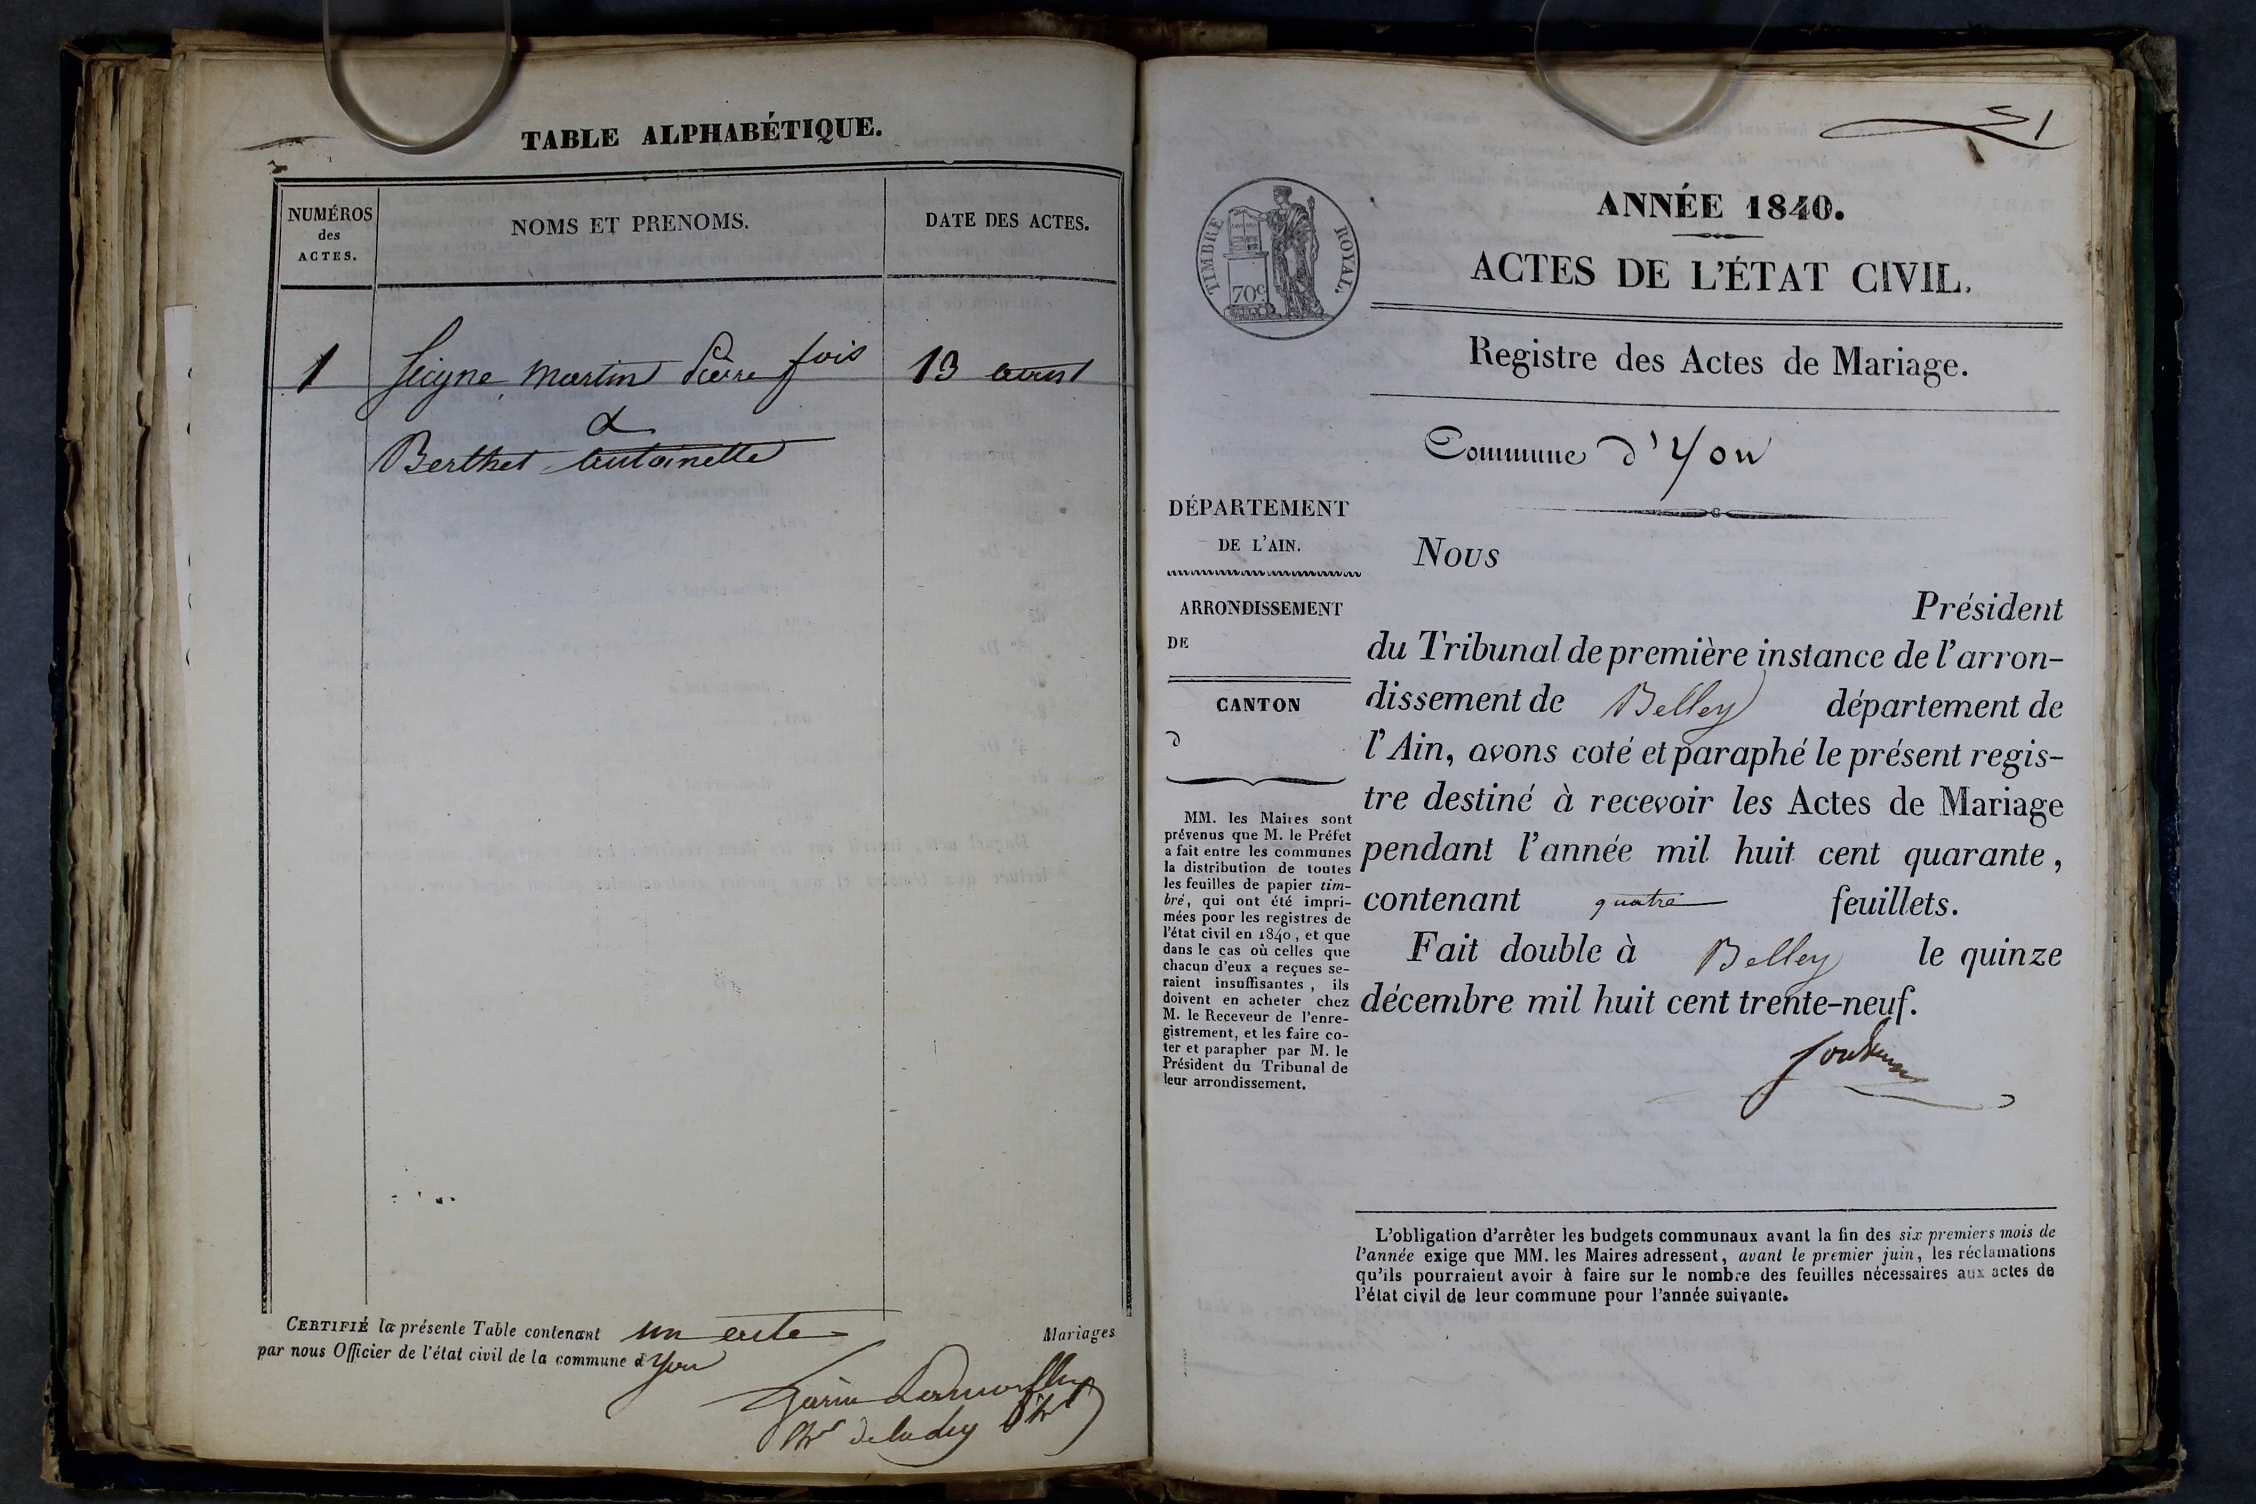 TABLE ALPHABÉTIQUE.
NUMÉROS
des
ACTES.
NOMS ET PRENOMS.
DATE DES ACTES.
1
martin Pierre fois
13 avril
&
Berthet antoinette
CERTIFIÉ la présente Table contenant un acte Mariages
par nous Officier de l'état civil de la commune d Yon
1
TIMBRE ROYAL.
70c
ANNÉE 1840.
ACTES DE L'ÉTAT CIVIL.
Registre des Actes de Mariage.
Commune d'Yon
DÉPARTEMENT
DE L'AIN.
ARRONDISSEMENT
DE
CANTON
d
MM. les Maires sont
prévenus que M. le Préfet
a fait entre les communes
la distribution de toutes
les feuilles de papier tim-
bré, qui ont été impri-
mées pour les registres de
l'état civil en 1840, et que
dans le cas où celles que
chacun d'eux a reçues se-
raient insuffisantes, ils
doivent en acheter chez
M. le Receveur de l'enre-
gistrement, et les faire co-
ter et parapher par M. le
Président du Tribunal de
leur arrondissement.
Nous
Président
du Tribunal de première instance de l'arron-
dissement de Belley département de
l'Ain, avons coté et paraphé le présent regis-
tre destiné à recevoir les Actes de Mariage
pendant l'année mil huit cent quarante,
contenant quatre feuillets.
Fait double à Belley le quinze
décembre mil huit cent trente-neuf.
L'obligation d'arrêter les budgets communaux avant la fin des six premiers mois de
l'année exige que MM. les Maires adressent, avant le premier juin, les réclamations
qu'ils pourraient avoir à faire sur le nombre des feuilles nécessaires aux actes de
l'état civil de leur commune pour l'année suivante.